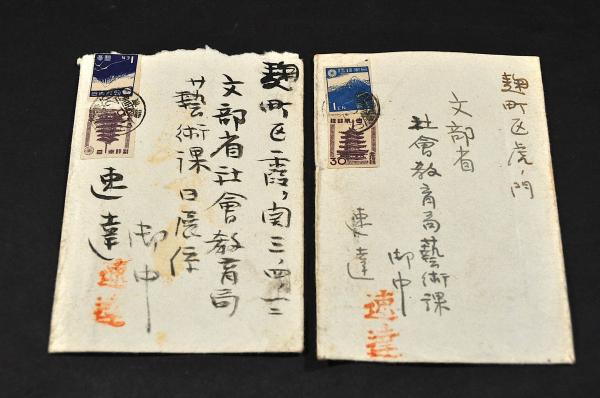 麹町区霞ヶ関三ノ四ノ
文部省社會教育局
藝術課日展係
御中
速達
速達
1
麹町区虎ノ門
文部省
社會教育局藝術課
御中
速達
速達
1
30